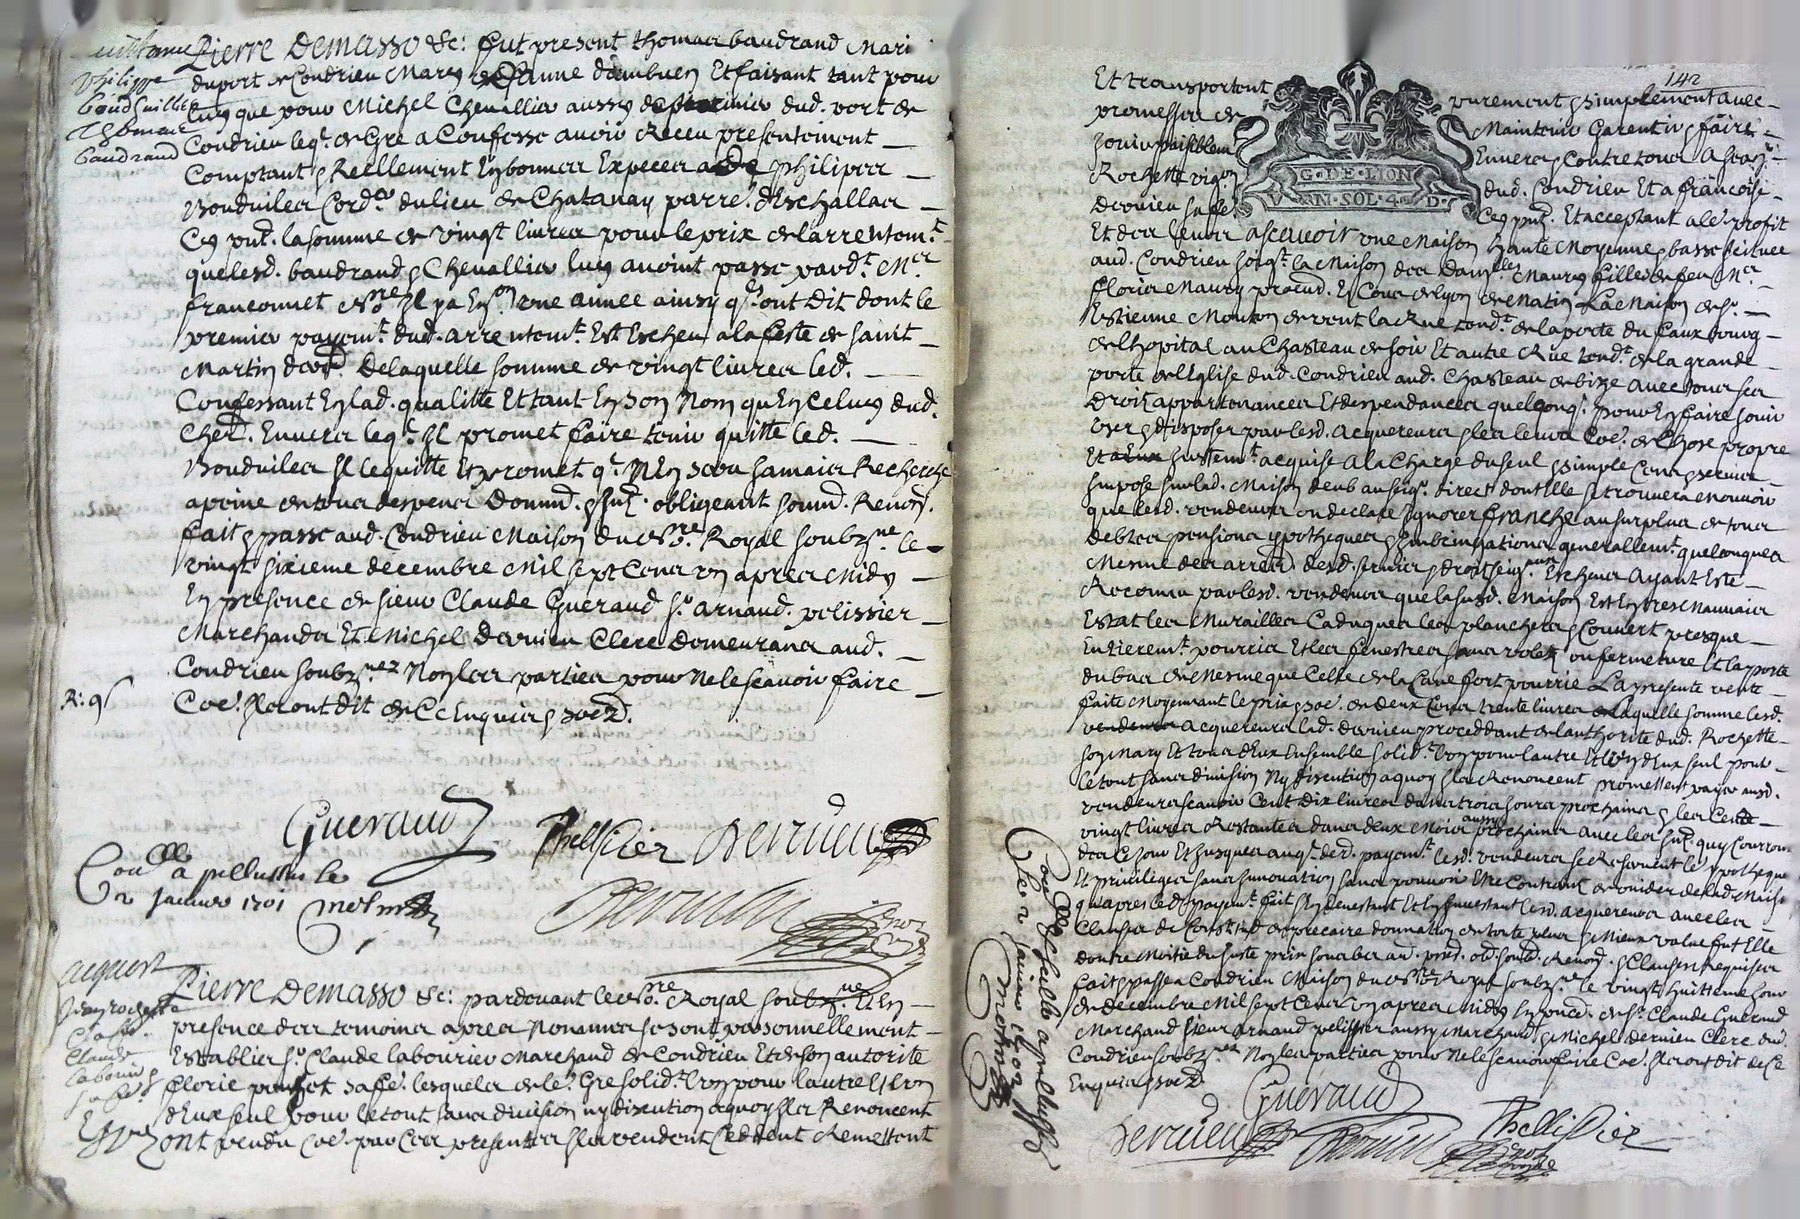 quittance
philippe
bonduilles
Thomas
baudrand
Pierre Demasso &c: fut present thomas baudrand Mari
du port de Condrieu Mary de Jeanne dambuen Et faisant tant pour
luy que pour Michel Chevallier aussy marinier dud. port de
Condrieu leql. de Gre a Confesse avoir Receu presentement
Comptant & Reellement En bonnes Especes de philipes
Bonduiles Cordr. du lieu de Chatanay parre. dEschallas
Cy pnt. la somme de vingt livres pour le prix de larrentemt.
que lesd. baudrand & Chevallier luy avoint passe pardt. Mr.
franconnet nore. Il ya Eu une annee ainsy ql. ont dit dont le
premier payemt. dud. arrentemt. Est Escheu a la feste de saint
Martin dern. De laquelle somme de vingt livres led.
Confessant En lad. qualitte Et tant En son Nom quEn Celuy dud.
Cher. Envers leql. Il promet faire tenir quitte led.
Bonduiles Il le quitte Et promet ql. nEn sera jamais Recherche
a peine de tous despens domm. & Int. obligeant soumd. Renon.
fait & passe aud. Condrieu Maison du nore. Royal soubzne. le
vingt sixieme decembre Mil sept Cens un apres Midy
En presence de sieur Claude Gueraud sr. arnaud pelissier
Marchands Et Michel dervieu Clerc demeurans aud.
Condrieu soubznez Non les parties pour ne le scavoir faire
Coe. Ils ont dit de Ce Enquis & soed.
R: 9s
Gueraud
Thellissier Dervieu
Conlle a pellussin le
2 janvier 1701
acquest
Jean rochette
& sa fe.
Claude
labourier &
sa fe.
Pierre Demasso &c: pardevant le nore. Royal soubzne. Et En
presence des temoins apres Nommes se sont personnellement
Establis sr. Claude labourier Marchand de Condrieu Et de son autorite
florie ponset sa fe. lesquels de le. Gre solidt. lun pour lautre Et lun
dEux seul pour le tout sans division ny discution a quoy Ils Renoncent
ont vendu Coe. par Ces presentes Ils vendent Ceddent Remettent
142
G·DE·LION
V RN·SOL·4 D·
Et transportent purement & simplement avec
promesse de Maintenir Garentir & faire
jouir paisiblemt. Envers & Contre tous A jean
Rochette vign. dud. Condrieu Et a françoise
Dervieu sa fe. Cy pnt. Et acceptant a le. profit
Et des leurs ascavoir une Maison haute Moyenne & basse scituee
aud. Condrieu joigt. la Maison des damlles. Maurys filles de feu Mr.
florie Maury procud. En Cour de lyon de Matin La Maison de sr.
Estienne Mouton de vent la Rue tendt. de la porte du fauxbourg
de lhopital au Chasteau de soir Et autre Rue tendt. de la grande
porte de lEglise dud. Condrieu aud. Chasteau de bize avec tous ses
droits appartenances Et despendances quelconq. pour En faire jouir
user & disposer par lesd. acquereurs & les leurs Coe. de Chose propre
Et justemt. acquise a la Charge du seul & simple Cens & servis
Impose sur lad. Maison deub au seigr. direct dont Elle se trouvera Mouvoir
que lesd. vendeurs on declare Ignorer franche au surplus de tous
debtes pensions ypotheques & Imbringations generallemt. quelconques
Mesme des arrera. desd. servis & droits seigrx. Escheus Ayant Este
Reconnu par lesd. vendeurs que la susd. Maison Est En tres Mauvais
Estat les Murailles Caduques les planchers & Couvert presque
Entieremt. pourris Et les fenestres sans volets ou fermeture Et la porte
du bas de Mesme que Celle de la Cave fort pourrie La presente vente
faite Moyennant le prix & soe. de deux Cens trente livres laquelle somme lesd.
acquereurs lad. dervieu proceddant de lauthorite dud. Rochette
son Mary Et tous dEux Ensemble solidt. lun pour lautre Et lun dEux seul pour
le tout sans division Ny discution a quoy Ils Renoncent promettent payer ausd.
vendeurs scavoir Cent dix livres dans trois jours prochains & les Cent
vingt livres Restantes dans deux Mois aussy prochains avec les Int. quy Courront
des Ce jour Et jusques auql. derd. payemt. lesd. vendeurs se Reservent lypotheque
Et privileges sans Innovation sans pouvoir Etre Contraint de vuider de lad. Maison
quapres led. payemt. fait
Clauses de Constitud. de precaire donnation de toute plus & Mieux value fut Elle
doutre Moitie du juste prix soubz au. pned. obl. soumd. Renon. & Clauses Requises
fait & passe a Condrieu Maison du nore. Royal soubzne. le vingt huitieme jour
de decembre Mil sept Cens un apres Midy En pnce. de sr. Claude Gueraud
Marchand sieur arnaud pelissier aussy Marchand & Michel dervieu Clerc dud.
Condrieu soubznez Non les parties pour Ne le scavoir faire Coe. Ils ont dit de Ce
Enquis & soed.
Gueraud
Dervieu Thellissier